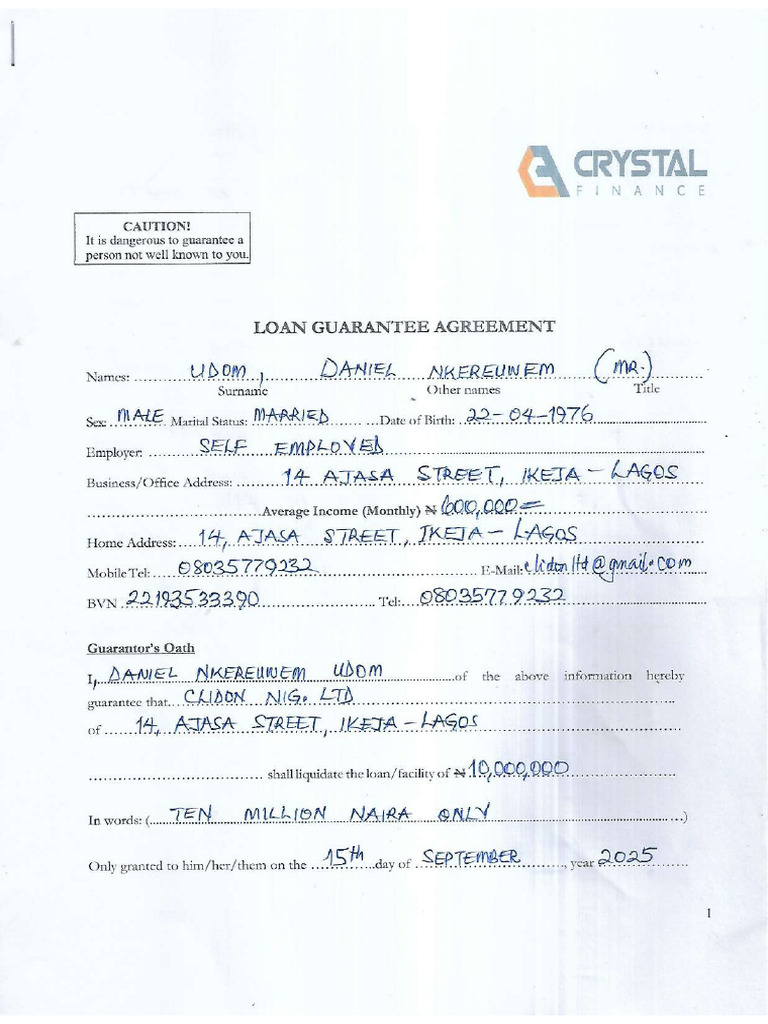 CRYSTAL
FINANCE
CAUTION!
It is dangerous to guarantee a
person not well known to you.
LOAN GUARANTEE AGREEMENT
Names: UDOM, DANIEL NKEREUWEM (MR.)
Surname Other names Title
Sex: MALE Marital Status: MARRIED Date of Birth: 22-04-1976
Employer: SELF EMPLOYED
Business/Office Address: 14 AJASA STREET, IKEJA - LAGOS
Average Income (Monthly) ₦ 600,000=
Home Address: 14, AJASA STREET, IKEJA - LAGOS
Mobile Tel: 08035779232 E-Mail: clidonltd@gmail.com
BVN 22193533390 Tel: 08035779232
Guarantor's Oath
I, DANIEL NKEREUWEM UDOM of the above information hereby
guarantee that CLIDON NIG. LTD
of 14, AJASA STREET, IKEJA - LAGOS
shall liquidate the loan/facility of ₦ 10,000,000
In words: ( TEN MILLION NAIRA ONLY )
Only granted to him/her/them on the 15th day of SEPTEMBER, year 2025
1